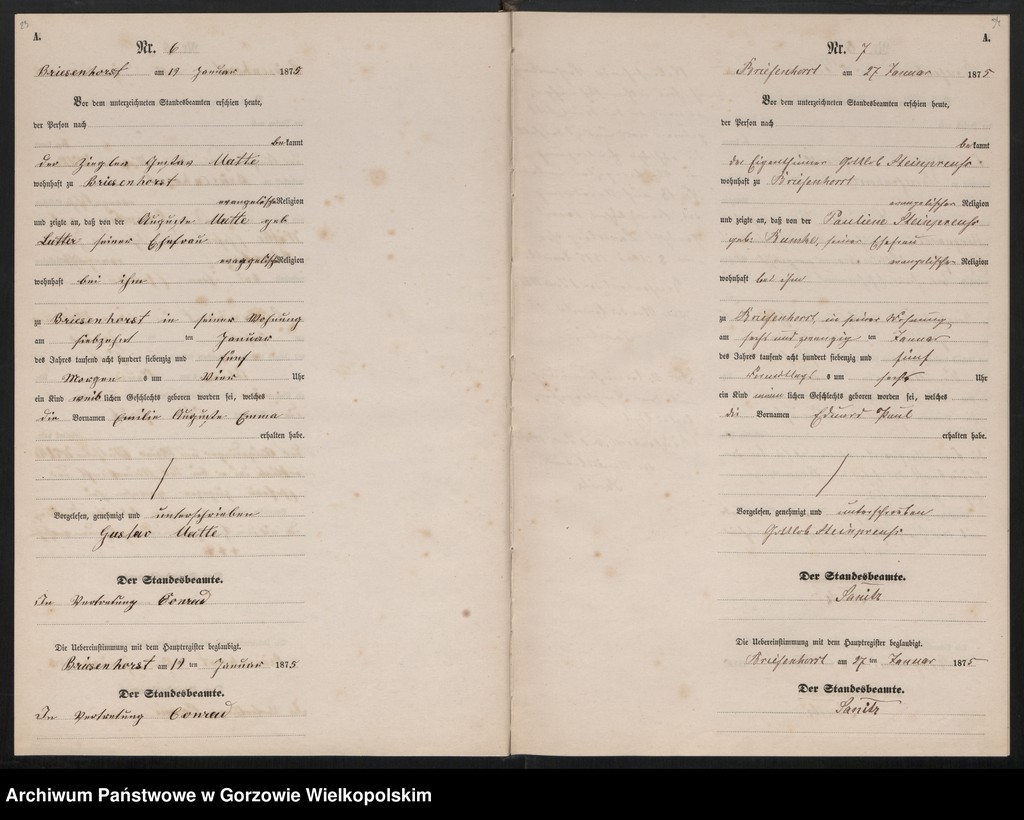 A.
Nr. 6
Briesenhorst am 19 Januar 1875
Vor dem unterzeichneten Standesbeamten erschien heute,
der Person nach
bekannt
der Ziegler Gustav Matte
wohnhaft zu Briesenhorst
evangelisch Religion
und zeigte an, daß von der Auguste Matte geb
Lutter seiner Ehefrau
evangelisch Religion
wohnhaft bei ihm
zu Briesenhorst in seiner Wohnung
am siebzehnt ten Januar
des Jahres tausend acht hundert siebenzig und fünf
Morgens um Vier Uhr
ein Kind weiblichen Geschlechts geboren worden sei, welches
die Vornamen Emilie Auguste Emma
erhalten habe.
Vorgelesen, genehmigt und unterschrieben
Gustav Matte
Der Standesbeamte.
In Vertretung Conrad
Die Uebereinstimmung mit dem Hauptregister beglaubigt.
Briesenhorst am 19 ten Januar 1875
Der Standesbeamte.
In Vertretung Conrad
94
A.
Nr. 7
Briesenhorst am 27 Januar 1875
Vor dem unterzeichneten Standesbeamten erschien heute,
der Person nach
bekannt
der Eigenthümer Gottlob Steinpreuß
wohnhaft zu Briesenhorst
evangelischer Religion
und zeigte an, daß von der Pauline Steinpreuß
geb: Rumke, seiner Ehefrau
evangelischer Religion
wohnhaft bei ihm
zu Briesenhorst in seiner Wohnung
am sechs und zwanzig ten Januar
des Jahres tausend acht hundert siebenzig und fünf
Vormittags um sechs Uhr
ein Kind männlichen Geschlechts geboren worden sei, welches
die Vornamen Eduard Paul
erhalten habe.
Vorgelesen, genehmigt und unterschrieben
Gottlob Steinpreuß
Der Standesbeamte.
Sanitz
Die Uebereinstimmung mit dem Hauptregister beglaubigt.
Briesenhorst am 27 ten Januar 1875
Der Standesbeamte.
Sanitz
Archiwum Państwowe w Gorzowie Wielkopolskim